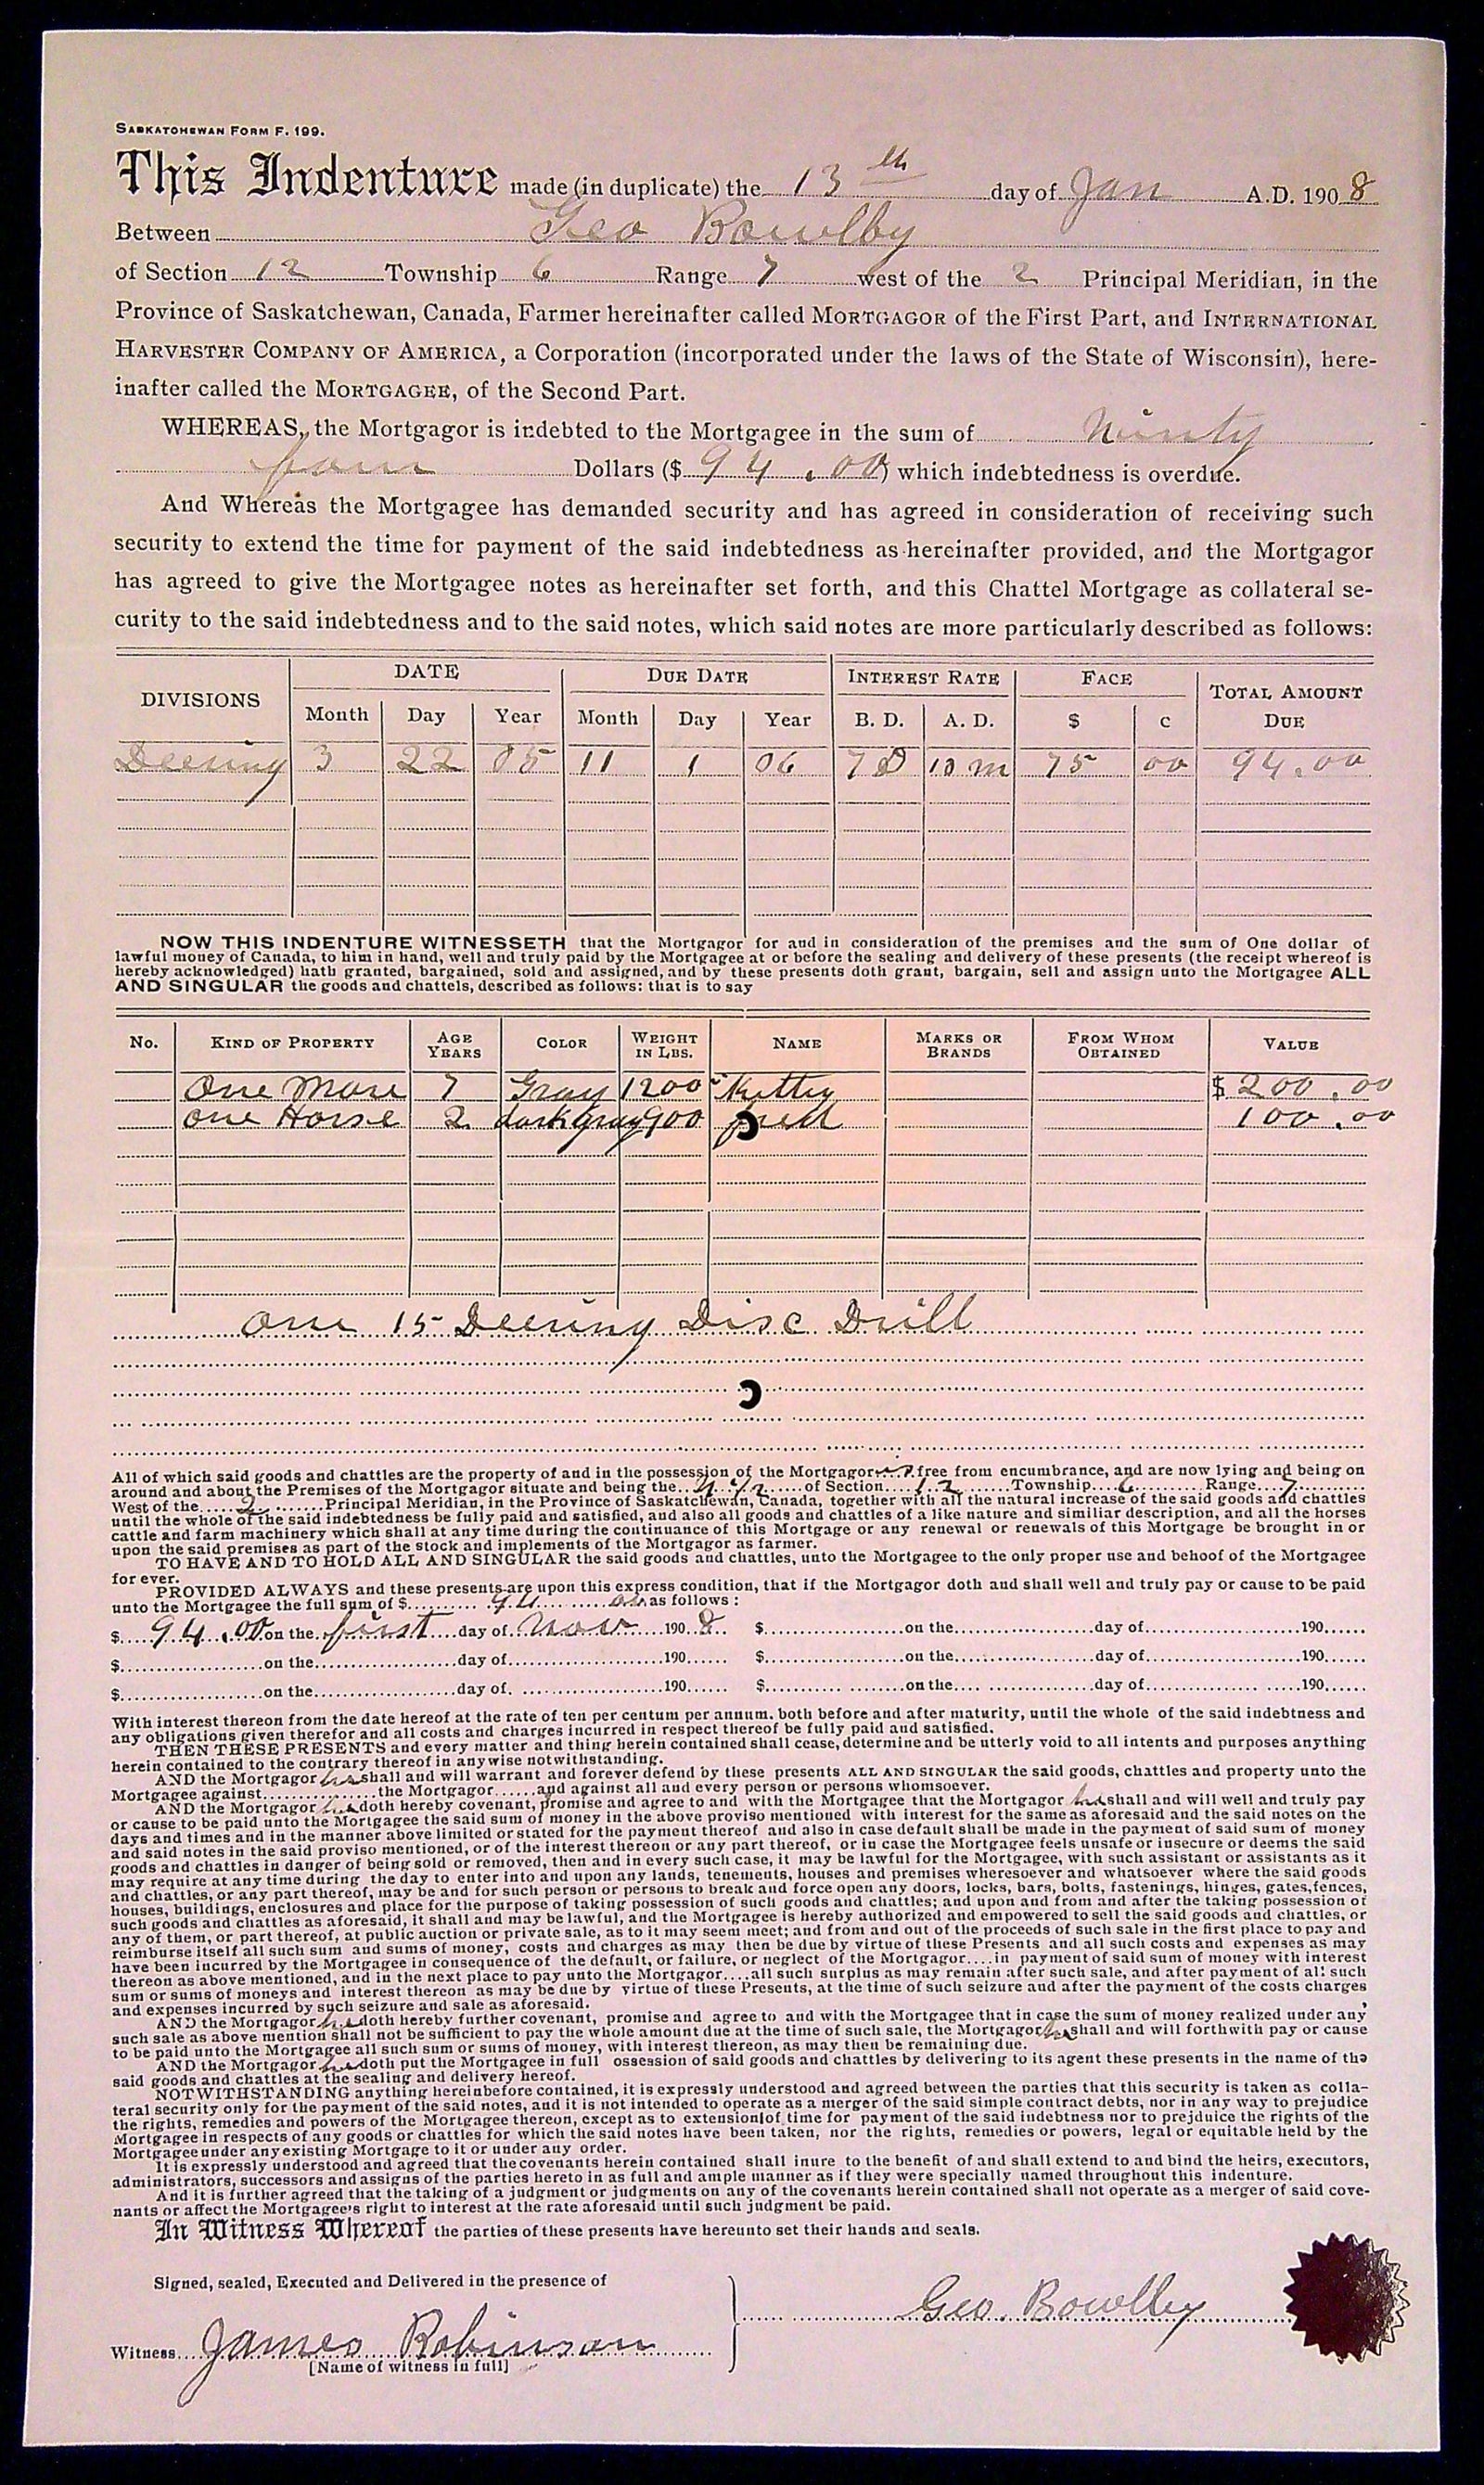 SASKATCHEWAN FORM F. 199.
This Indenture made (in duplicate) the 13th day of Jan A.D. 1908
Between Geo Bowlby
of Section 12 Township 6 Range 7 west of the 2 Principal Meridian, in the
Province of Saskatchewan, Canada, Farmer hereinafter called MORTGAGOR of the First Part, and INTERNATIONAL
HARVESTER COMPANY OF AMERICA, a Corporation (incorporated under the laws of the State of Wisconsin), here-
inafter called the MORTGAGEE, of the Second Part.
WHEREAS, the Mortgagor is indebted to the Mortgagee in the sum of Ninty
four Dollars ($ 94.00) which indebtedness is overdue.
And Whereas the Mortgagee has demanded security and has agreed in consideration of receiving such
security to extend the time for payment of the said indebtedness as hereinafter provided, and the Mortgagor
has agreed to give the Mortgagee notes as hereinafter set forth, and this Chattel Mortgage as collateral se-
curity to the said indebtedness and to the said notes, which said notes are more particularly described as follows:
DIVISIONS DATE DUE DATE INTEREST RATE FACE TOTAL AMOUNT DUE
Month Day Year Month Day Year B. D. A. D. $ c
Deering 3 22 05 11 1 06 7 D 10 m 75 00 94.00
NOW THIS INDENTURE WITNESSETH that the Mortgagor for and in consideration of the premises and the sum of One dollar of
lawful money of Canada, to him in hand, well and truly paid by the Mortgagee at or before the sealing and delivery of these presents (the receipt whereof is
hereby acknowledged) hath granted, bargained, sold and assigned, and by these presents doth grant, bargain, sell and assign unto the Mortgagee ALL
AND SINGULAR the goods and chattels, described as follows: that is to say
No. KIND OF PROPERTY AGE YEARS COLOR WEIGHT IN LBS. NAME MARKS OR BRANDS FROM WHOM OBTAINED VALUE
One Mare 7 Gray 1200 Kitty $200.00
one Horse 2 dark gray 900 fred 100.00
One 15 Deering Disc Drill
All of which said goods and chattles are the property of and in the possession of the Mortgagor is free from encumbrance, and are now lying and being on
around and about the Premises of the Mortgagor situate and being the N 1/2 of Section 12 Township 6 Range 7
West of the 2 Principal Meridian, in the Province of Saskatchewan, Canada, together with all the natural increase of the said goods and chattles
until the whole of the said indebtedness be fully paid and satisfied, and also all goods and chattles of a like nature and similiar description, and all the horses
cattle and farm machinery which shall at any time during the continuance of this Mortgage or any renewal or renewals of this Mortgage be brought in or
upon the said premises as part of the stock and implements of the Mortgagor as farmer.
TO HAVE AND TO HOLD ALL AND SINGULAR the said goods and chattles, unto the Mortgagee to the only proper use and behoof of the Mortgagee
for ever.
PROVIDED ALWAYS and these presents are upon this express condition, that if the Mortgagor doth and shall well and truly pay or cause to be paid
unto the Mortgagee the full sum of $ 94 00 as follows:
$ 94.00 on the first day of Nov 1908 $ on the day of 190
$ on the day of 190 $ on the day of 190
$ on the day of 190 $ on the day of 190
With interest thereon from the date hereof at the rate of ten per centum per annum. both before and after maturity, until the whole of the said indebtness and
any obligations given therefor and all costs and charges incurred in respect thereof be fully paid and satisfied.
THEN THESE PRESENTS and every matter and thing herein contained shall cease, determine and be utterly void to all intents and purposes anything
herein contained to the contrary thereof in anywise notwithstanding.
AND the Mortgagor shall and will warrant and forever defend by these presents ALL AND SINGULAR the said goods, chattles and property unto the
Mortgagee against the Mortgagor and against all and every person or persons whomsoever.
AND the Mortgagor doth hereby covenant, promise and agree to and with the Mortgagee that the Mortgagor shall and will well and truly pay
or cause to be paid unto the Mortgagee the said sum of money in the above proviso mentioned with interest for the same as aforesaid and the said notes on the
days and times and in the manner above limited or stated for the payment thereof and also in case default shall be made in the payment of said sum of money
and said notes in the said proviso mentioned, or of the interest thereon or any part thereof, or in case the Mortgagee feels unsafe or insecure or deems the said
goods and chattles in danger of being sold or removed, then and in every such case, it may be lawful for the Mortgagee, with such assistant or assistants as it
may require at any time during the day to enter into and upon any lands, tenements, houses and premises wheresoever and whatsoever where the said goods
and chattles, or any part thereof, may be and for such person or persons to break and force open any doors, locks, bars, bolts, fastenings, hinges, gates, fences,
houses, buildings, enclosures and place for the purpose of taking possession of such goods and chattles; and upon and from and after the taking possession of
such goods and chattles as aforesaid, it shall and may be lawful, and the Mortgagee is hereby authorized and empowered to sell the said goods and chattles, or
any of them, or part thereof, at public auction or private sale, as to it may seem meet; and from and out of the proceeds of such sale in the first place to pay and
reimburse itself all such sum and sums of money, costs and charges as may then be due by virtue of these Presents and all such costs and expenses as may
have been incurred by the Mortgagee in consequence of the default, or failure, or neglect of the Mortgagor....in payment of said sum of money with interest
thereon as above mentioned, and in the next place to pay unto the Mortgagor....all such surplus as may remain after such sale, and after payment of all such
sum or sums of moneys and interest thereon as may be due by virtue of these Presents, at the time of such seizure and after the payment of the costs charges
and expenses incurred by such seizure and sale as aforesaid.
AND the Mortgagor doth hereby further covenant, promise and agree to and with the Mortgagee that in case the sum of money realized under any
such sale as above mention shall not be sufficient to pay the whole amount due at the time of such sale, the Mortgagor shall and will forthwith pay or cause
to be paid unto the Mortgagee all such sum or sums of money, with interest thereon, as may then be remaining due.
AND the Mortgagor doth put the Mortgagee in full ossession of said goods and chattles by delivering to its agent these presents in the name of the
said goods and chattles at the sealing and delivery hereof.
NOTWITHSTANDING anything hereinbefore contained, it is expressly understood and agreed between the parties that this security is taken as colla-
teral security only for the payment of the said notes, and it is not intended to operate as a merger of the said simple contract debts, nor in any way to prejudice
the rights, remedies and powers of the Mortgagee thereon, except as to extension of time for payment of the said indebtness nor to prejduice the rights of the
Mortgagee in respects of any goods or chattles for which the said notes have been taken, nor the rights, remedies or powers, legal or equitable held by the
Mortgagee under any existing Mortgage to it or under any order.
It is expressly understood and agreed that the covenants herein contained shall inure to the benefit of and shall extend to and bind the heirs, executors,
administrators, successors and assigns of the parties hereto in as full and ample manner as if they were specially named throughout this indenture.
And it is further agreed that the taking of a judgment or judgments on any of the covenants herein contained shall not operate as a merger of said cove-
nants or affect the Mortgagee's right to interest at the rate aforesaid until such judgment be paid.
In Witness Whereof the parties of these presents have hereunto set their hands and seals.
Signed, sealed, Executed and Delivered in the presence of
Geo. Bowlby
Witness James Robinson
[Name of witness in full]